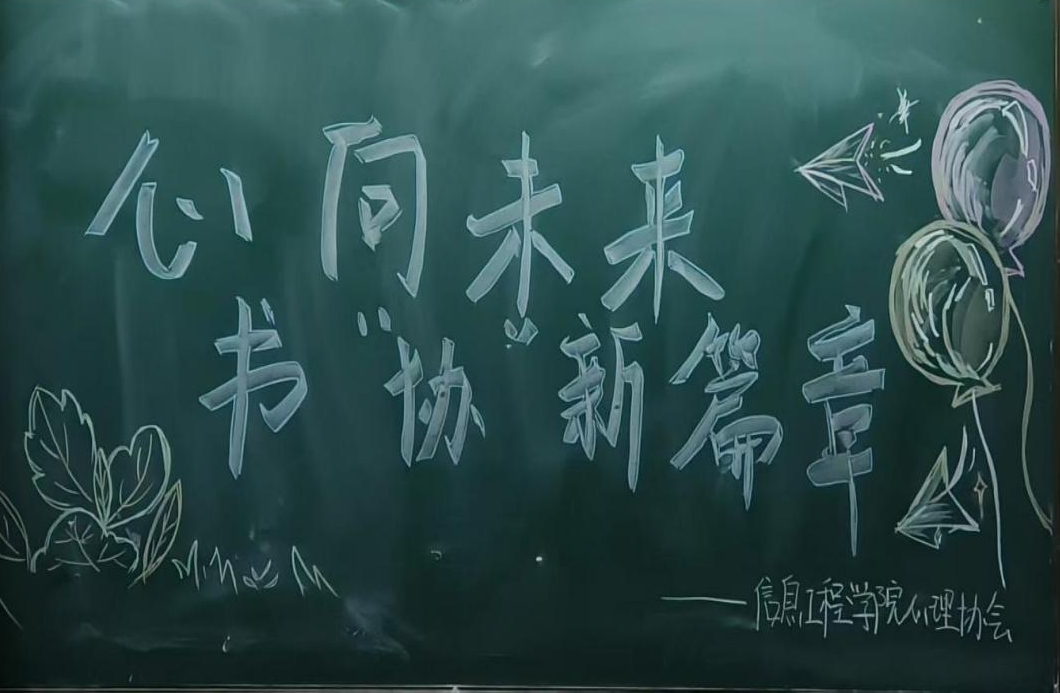 心向未来
书“协”新篇章
——信息工程学院心理协会